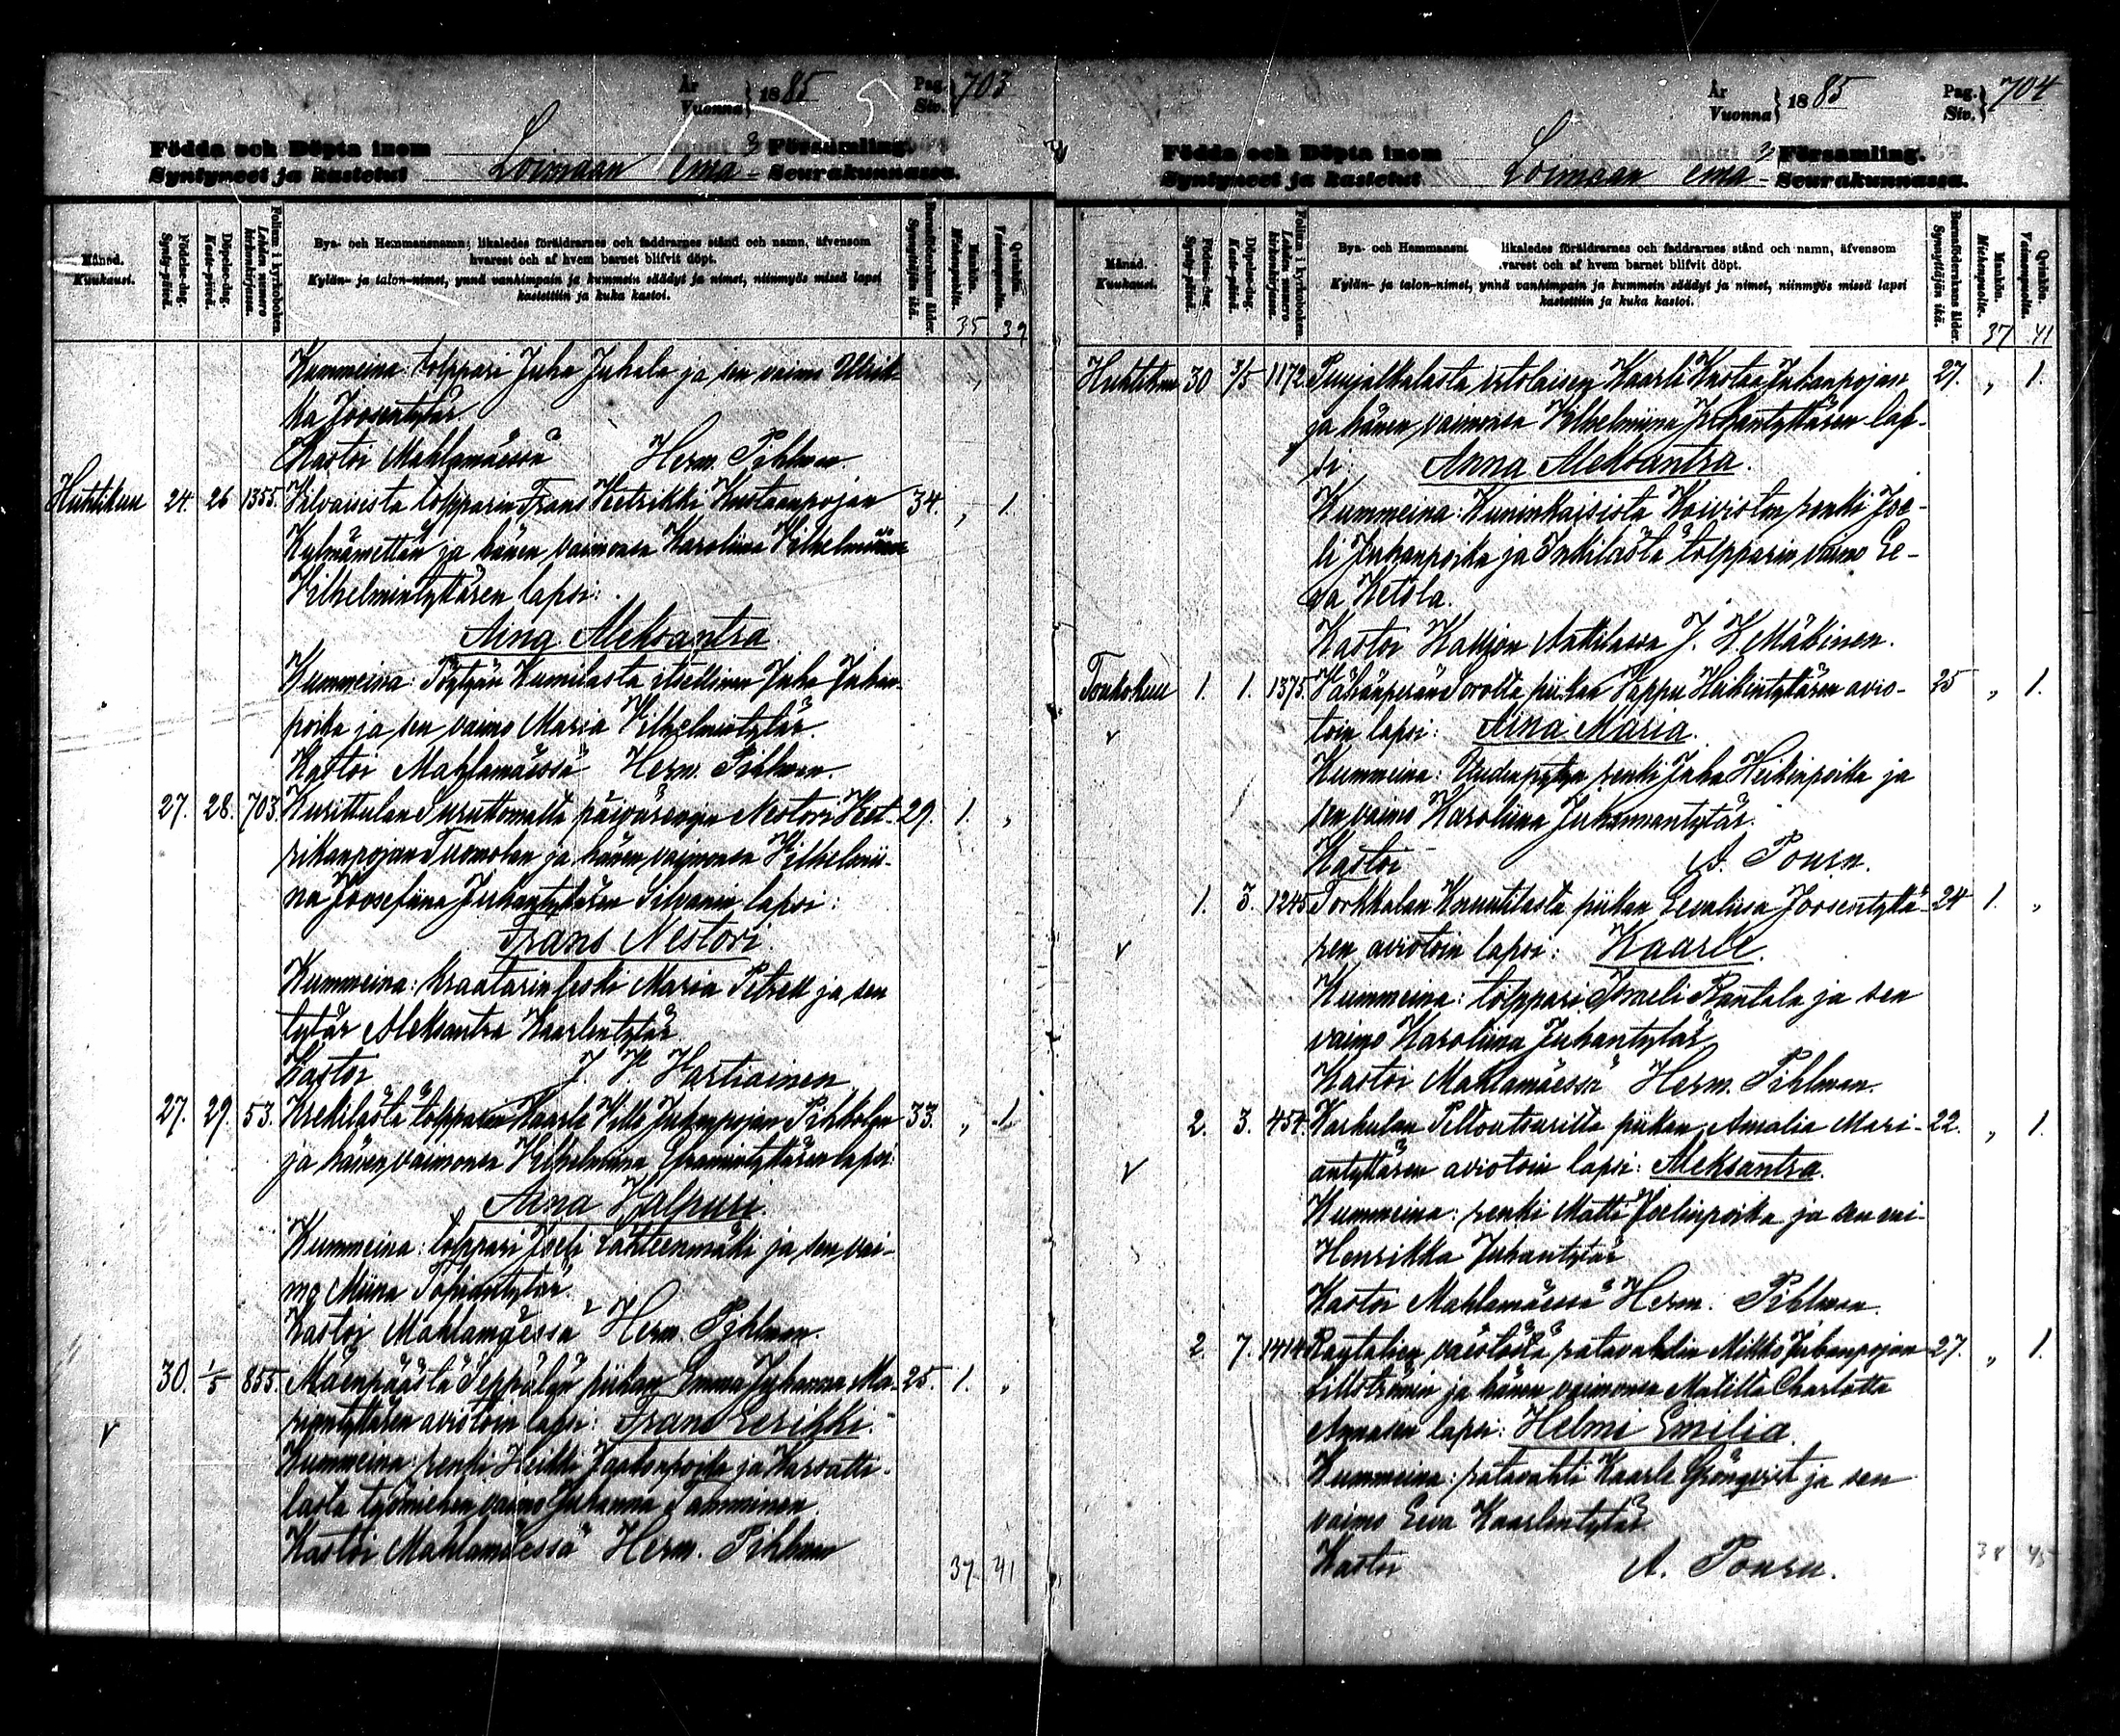 År
Vuonna } 1885
Pag.
Siv. } 703
Födda och Döpta inom
Syntyneet ja kastetut
Loimaan emä-
Församling.
Seurakunnassa.
Månad.
Kuukausi.
Födelse-dag.
Synty-päivä.
Döpelse-dag.
Kaste-päivä.
Folium i kyrkoboken.
Lehden numero kirkonkirjassa.
Bya- och Hemmansnamn; likaledes föräldrarnes och faddrarnes stånd och namn, äfvensom
hvarest och af hvem barnet blifvit döpt.
Kylän- ja talon-nimet, ynnä vanhimpain ja kummein säädyt ja nimet, niinmyös missä lapsi
kastettiin ja kuka kastoi.
Barnaföderskans ålder.
Synnyttäjän ikä.
Mankön.
Miehenpuolta.
Qvinkön.
Vaimonpuolta.
35 39
Kummeina: tolppari Juha Juhala ja sen vaimo Ulrik-
ka Joosentytär
Kastoi Mahlamäessä Herm. Pihlman.
Huhtikuu 24. 26 1355. tolpparin Frans Vietrikki Kustaanpojan 34. „ 1.
Kylmämettän ja hänen vaimonsa Karoliina Vilhelmiina
Vilhelmintyttären lapsi:
Aina Aleksantra
Kummeina: Pöytyän Kumilasta itsellinen Juha Juhan-
poika ja sen vaimo Maria Vilhelmintytär.
Kastoi Mahlamäessä Herm. Pihlman.
27. 28. 703. Kurittulan Suruttomalta päivärengin Nestori Ket- 29. 1. „
rikanpojan Tuomolan ja hänen vaimonsa Vilhelmii-
na Joosefiina Juhantyttären Silvanin lapsi:
Frans Nestori.
Kummeina: kraatarin leski Maria Petrell ja sen
tytär Aleksantra Kaarlentytär
Kastoi J. V. Hartiainen
27. 29. 53. Krekilästä tolpparin Kaarle Ville Juhanpojan Pihkolan 33. „ 1.
ja hänen vaimonsa Vilhelmiina Efraimintyttären lapsi:
Aina Valpuri.
Kummeina: tolppari Joeli Lähteenmäki ja sen vai-
mo Miina Topiantytär
Kastoi Mahlamäessä Herm. Pihlman.
30. 1/5 855. Mäenpäästä Seppälän piikan Emma Juhanna Ma- 25. 1. „
riantyttären aviotoin lapsi: Frans Eerikki.
Kummeina: renki Heikki Jaakonpoika ja Karsatti-
lasta työmiehen vaimo Juhanna Tamminen.
Kastoi Mahlamäessä Herm. Pihlman
37 41
År
Vuonna } 1885
Pag.
Siv. } 704
Födda och Döpta inom
Syntyneet ja kastetut
Loimaan emä-
Församling.
Seurakunnassa.
Månad.
Kuukausi.
Födelse-dag.
Synty-päivä.
Döpelse-dag.
Kaste-päivä.
Folium i kyrkoboken.
Lehden numero kirkonkirjassa.
Bya- och Hemmansn likaledes föräldrarnes och faddrarnes stånd och namn, äfvensom
varest och af hvem barnet blifvit döpt.
Kylän- ja talon-nimet, ynnä vanhimpain ja kummein säädyt ja nimet, niinmyös missä lapsi
kastettiin ja kuka kastoi.
Barnaföderskans ålder.
Synnyttäjän ikä.
Mankön.
Miehenpuolta.
Qvinkön.
Vaimonpuolta.
37 41
Huhtikuu 30 3/5 1172 Puujalkalasta Kaarle Kustaa Juhanpojan 27. „ 1.
ja hänen vaimonsa Vilhelmiina Juhantyttären lap-
si: Anna Aleksantra.
Kummeina: Kuninkaisista Koiviston renki Joe-
li Juhanpoika ja Inkilästä tolpparin vaimo Ee-
va Ketola.
Kastoi Kauhjon Anttilassa J. K. Mäkinen.
Toukokuu 1. 1. 1375. Vähänperän Sorolta piikan Vappu Heikintyttären avio- 25 „ 1.
toin lapsi: Aina Maria.
Kummeina: renki Juha Heikinpoika ja
sen vaimo Karoliina Juhannantytär.
Kastoi A. Pouru.
1. 3. 1245 Torkkalan Knuutilasta piikan Eevaliisa Joosentyttä- 24 1. „
ren aviotoin lapsi: Kaarle.
Kummeina: tolppari Israeli Rantala ja sen
vaimo Karoliina Juhantytär
Kastoi Mahlamäessä Herm. Pihlman.
2. 3. 454. Karhulan Peltoutourilta piikan Amalia Mari- 22. „ 1.
antyttären aviotoin lapsi: Aleksantra.
Kummeina: renki Matti Joelinpoika ja sen vai-
Henrikka Juhantytär
Kastoi Mahlamäessä Herm. Pihlman.
2. 7. 1414 Rautatien väestöstä ratavahdin Mikko Juhanpojan 27. „ 1.
Lillströmin ja hänen vaimonsa Matilta Charlotta
Annasen lapsi: Helmi Emilia.
Kummeina: ratavahti Kaarle Grönqvist ja sen
vaimo Eeva Kaarlentytär
Kastoi A. Pouru.
38 45